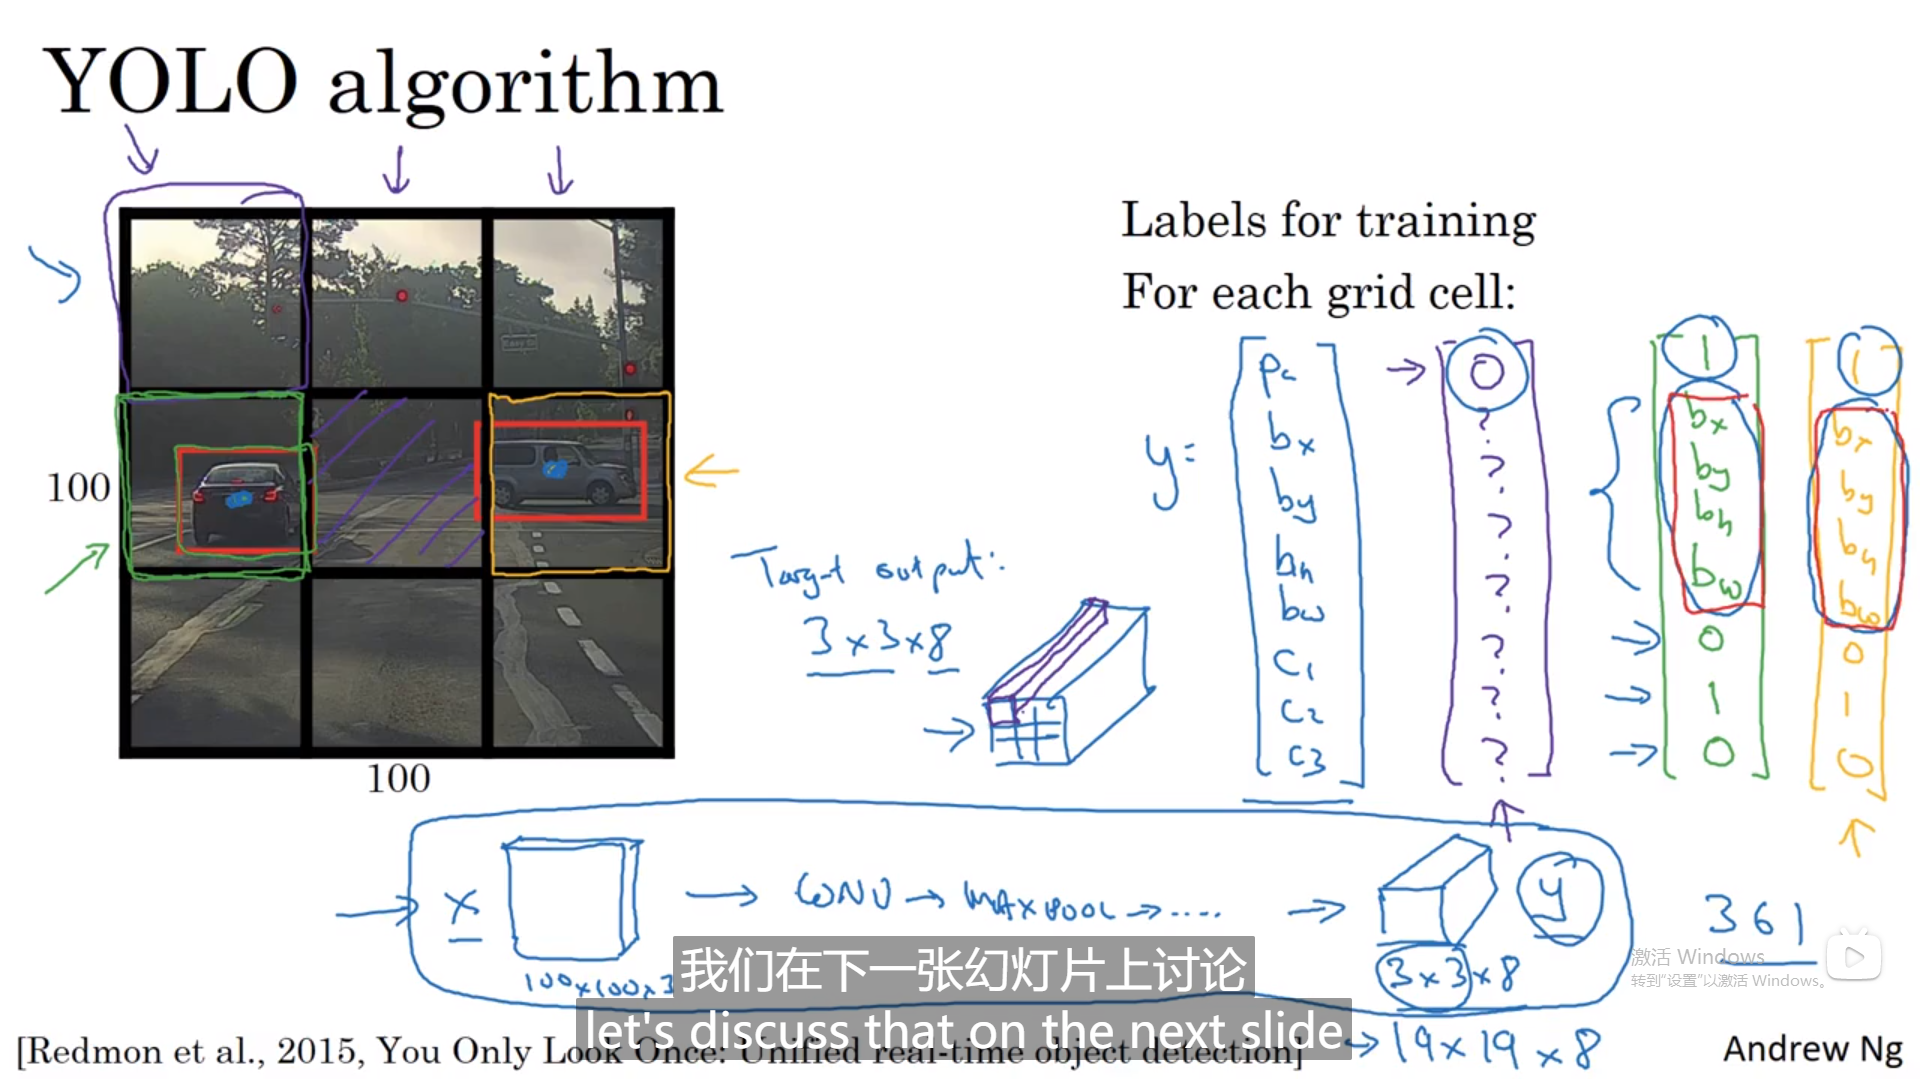 YOLO algorithm
Labels for training
For each grid cell:
100
100
Target output:
3×3×8
y=
Pc
bx
by
bh
bw
C1
C2
C3
0
?
?
?
?
?
?
?
1
bx
by
bh
bw
0
1
0
1
bx
by
bh
bw
0
1
0
x
100×100×3
CONV → MAXPOOL → ....
3×3×8
y
361
19×19×8
激活 Windows
转到"设置"以激活 Windows。
我们在下一张幻灯片上讨论
let's discuss that on the next slide
[Redmon et al., 2015, You Only Look Once: Unified real-time object detection]
Andrew Ng